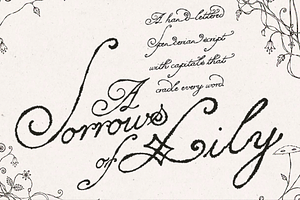 A hand-lettered
Spenderian script
with capitals that
cradle every word
A
Sorrows
of Lily